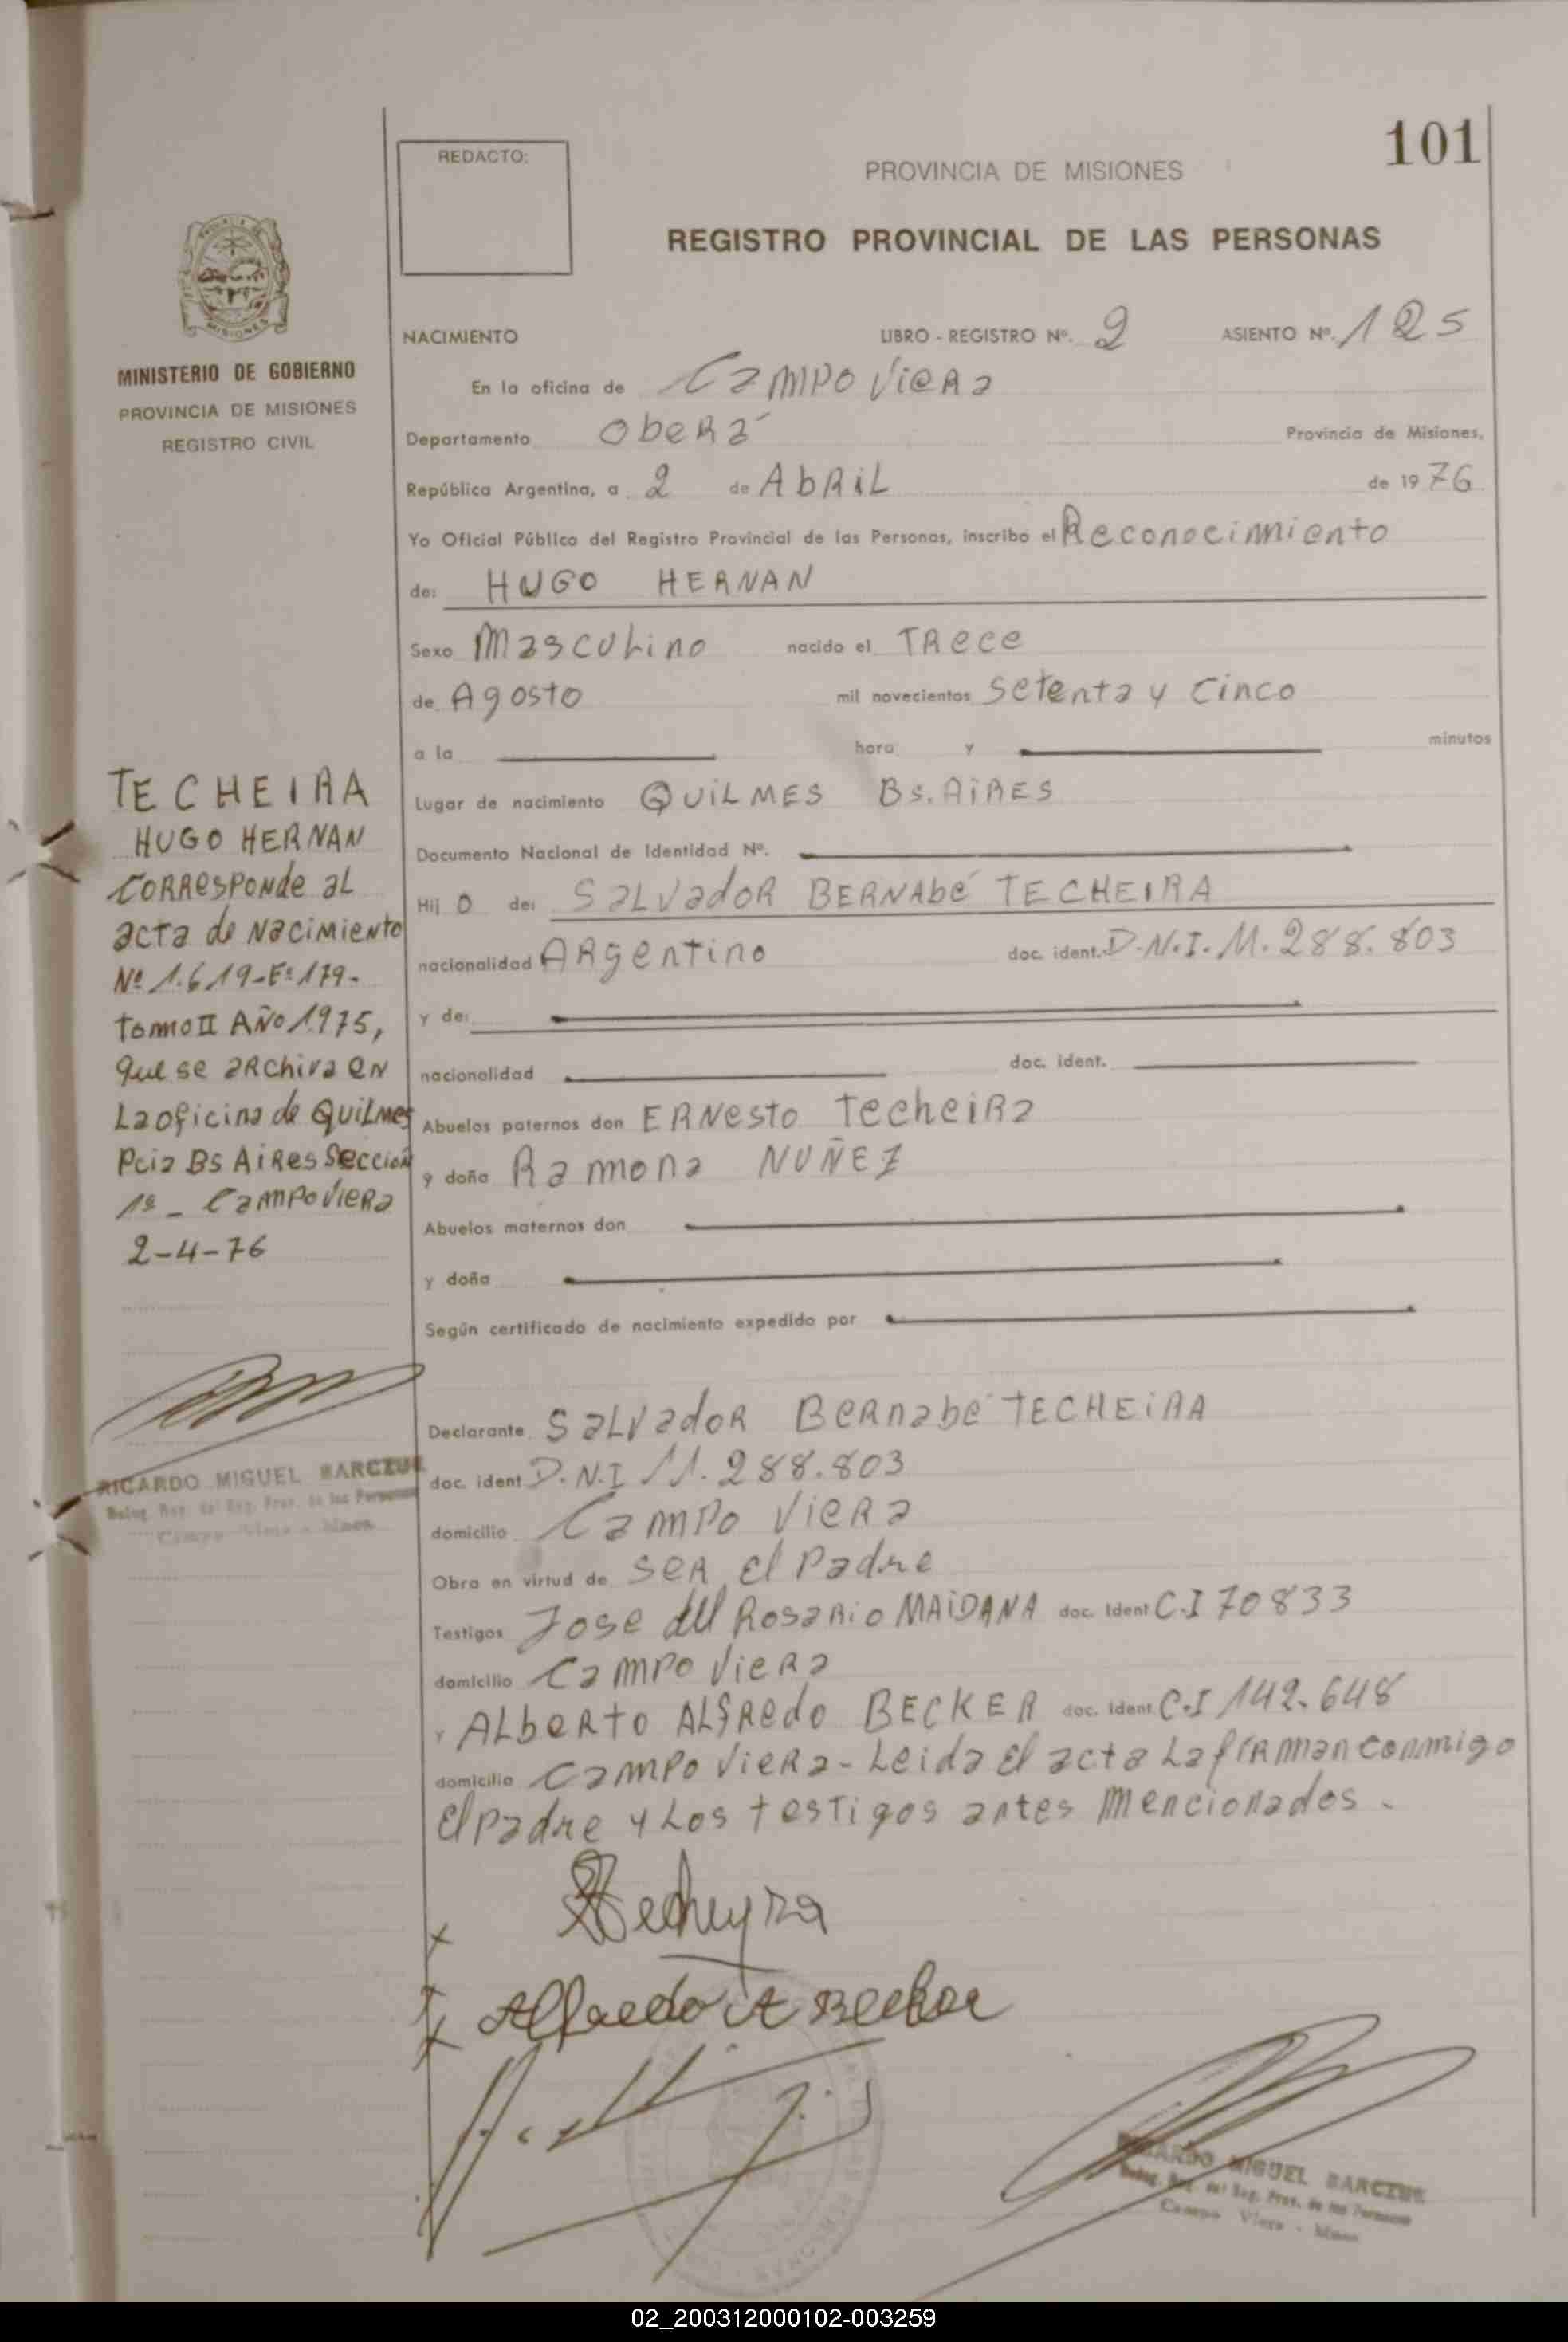 101
REDACTO:
PROVINCIA DE MISIONES
REGISTRO PROVINCIAL DE LAS PERSONAS
MINISTERIO DE GOBIERNO
PROVINCIA DE MISIONES
REGISTRO CIVIL
NACIMIENTO LIBRO - REGISTRO Nº. 2 ASIENTO Nº. 125
En la oficina de Campo Viera
Departamento Oberá Provincia de Misiones,
República Argentina, a 2 de Abril de 1976
Yo Oficial Público del Registro Provincial de las Personas, inscribo el Reconocimiento
de: HUGO HERNAN
Sexo Masculino nacido el Trece
de Agosto mil novecientos setenta y cinco
a la hora y minutos
Lugar de nacimiento QUILMES Bs. AIRES
Documento Nacional de Identidad Nº.
Hij o de: Salvador BERNAbé TECHEIRA
nacionalidad Argentino doc. ident. D.N.I. 11.288.803
y de:
nacionalidad doc. ident.
Abuelos paternos don ERNesto Techeira
y doña Ramona NUÑEZ
Abuelos maternos don
y doña
Según certificado de nacimiento expedido por
TECHEIRA
HUGO HERNAN
Corresponde al
acta de Nacimiento
Nº 1.619-Fº 179-
tomo II AÑO 1975,
que se archiva en
La oficina de Quilmes
Pcia Bs Aires Sección
1ª - Campo Viera
2-4-76
RICARDO MIGUEL BARCZUK
Deleg. Rep. del Reg. Prov. de las Personas
Campo Viera - Mnes
Declarante Salvador Bernabé TECHEIRA
doc. ident D.N.I 11.288.803
domicilio Campo Viera
Obra en virtud de ser el Padre
Testigos Jose del Rosario MAIDANA doc. Ident C.I 70833
domicilio Campo Viera
y Alberto Alfredo BECKER doc. Ident C.I 142.648
domicilio Campo Viera - Leida el acta la firman conmigo
el padre y los testigos antes mencionados.
Techeyra
Alfredo A Becker
RICARDO MIGUEL BARCZUK
Deleg. Rep. del Reg. Prov. de las Personas
Campo Viera - Mnes
02_200312000102-003259